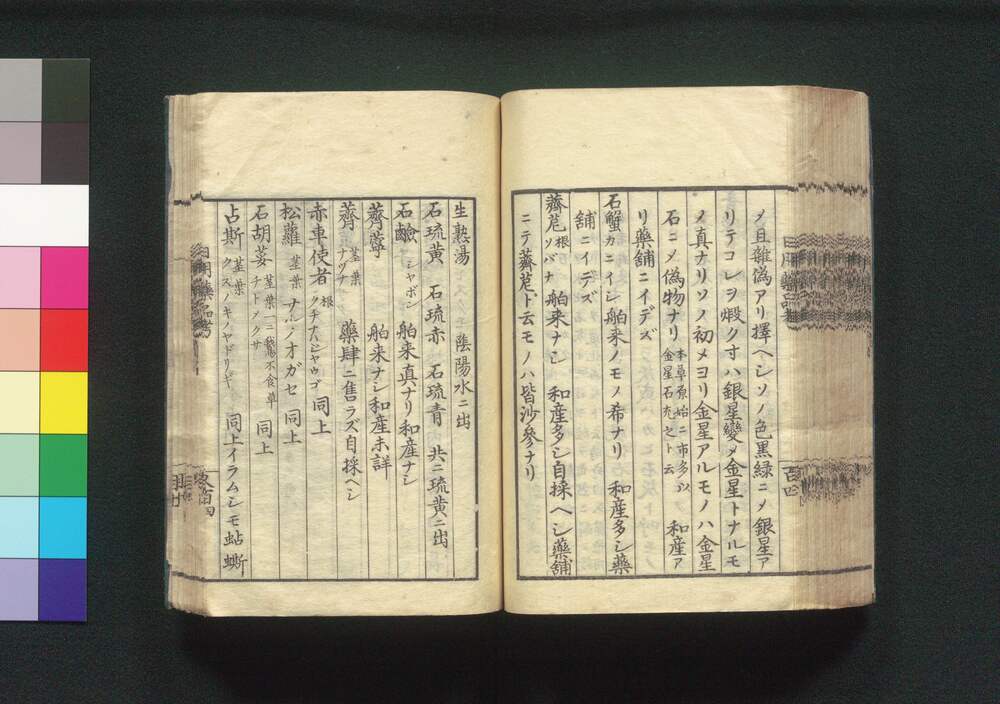 メ且雑偽アリ擇ヘシソノ色黒緑ニメ銀星ア
リテコレヲ煅ク寸ハ銀星變メ金星トナルモ
ノ真ナリソノ初メヨリ金星アルモノハ金星
石ニメ偽物ナリ 本草原始ニ市多以金星石充之ト云 和産ア
リ藥舗ニイデズ
石蟹 カニイシ 舶来ノモメ希ナリ 和産多シ藥
舗ニイデズ
薺苨 根 ソバナ 舶来ナシ 和産多シ自採ヘシ藥舗
ニテ薺苨ト云モノハ皆沙參ナリ
生熟湯 陰陽水ニ出
石琉黄 石琉赤 石琉青 共ニ琉黄ニ出
石鹼 シャボン 舶来真ナリ和産ナシ
薺薴 舶来ナシ和産未詳
薺 莖葉 ナヅナ 藥肆ニ售ラズ自採ヘシ
赤車使者 根 同上
松蘿 莖葉 サルノオガセ 同上
石胡荽 莖葉一ニ鵞不食草 チトメクサ 同上
占斯 莖葉 クスノキノヤドリギ 同上イラムシモ蛅蟖